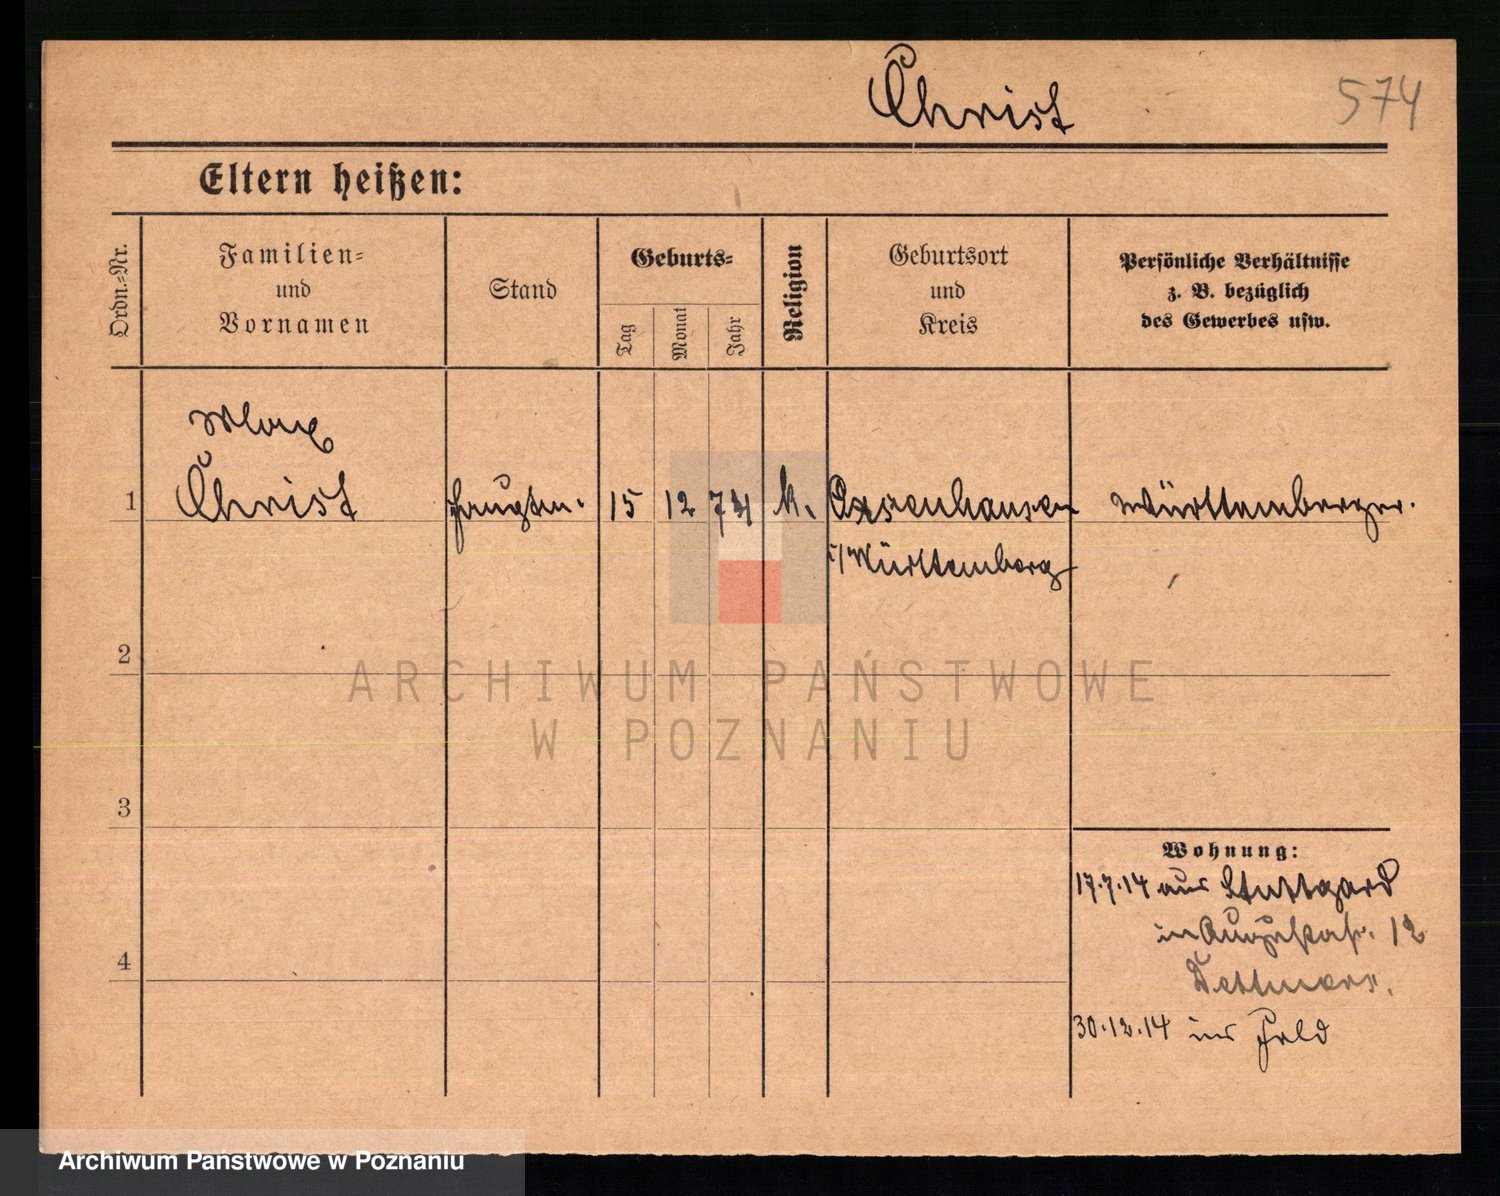 Christ
574
Eltern heißen:
Ordn.-Nr.
Familien-
und
Vornamen
Stand
Geburts-
Tag
Monat
Jahr
Religion
Geburtsort
und
Kreis
Persönliche Verhältnisse
z. B. bezüglich
des Gewerbes usw.
Max
1 Christ Hauptm. 15 12 74 k. Ochsenhausen Württemberger.
i/Württemberg
2
ARCHIWUM PAŃSTWOWE
W POZNANIU
3
Wohnung:
17.7.14 aus Stuttgard
in 12
4
Dettmers.
30.12.14 ins Feld
Archiwum Państwowe w Poznaniu